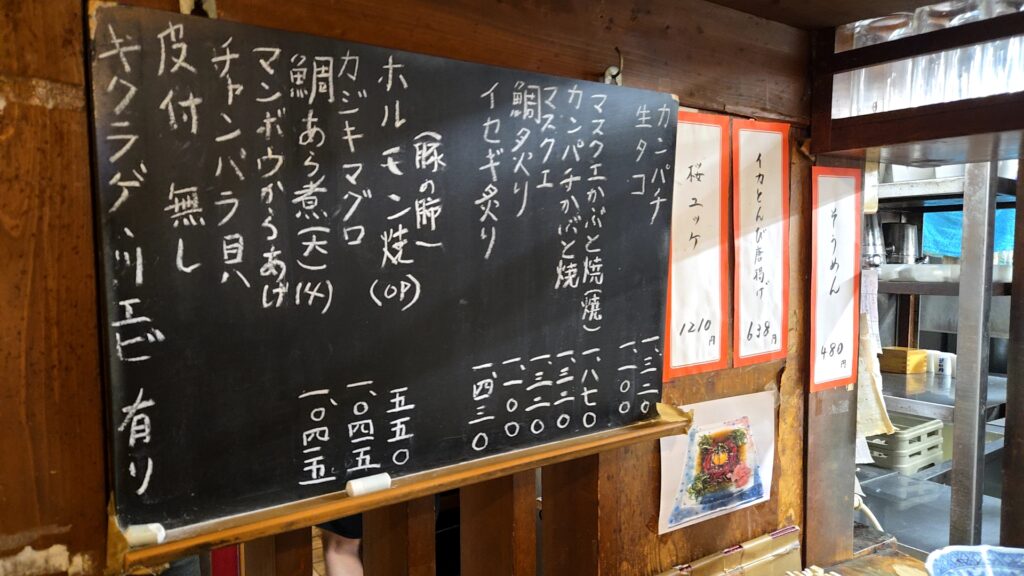 そうめん 480円
イカとんび唐揚げ 638円
桜ユッケ 1210円
カンパチ 一、三二〇
生タコ 一、一〇〇
マスクエかぶと焼(焼) 一、八七〇
カンパチかぶと焼 一、三二〇
マスクエ 一、三二〇
鯛炙り 一、一〇〇
イセギ炙り 一、四三〇
(豚の肺)
ホルモン焼(OP) 五五〇
カジキマグロ 一、〇四五
鯛あら煮(大)(14) 一、〇四五
マンボウからあげ
チャンバラ貝
皮付 無し
キクラゲ、川エビ 有り